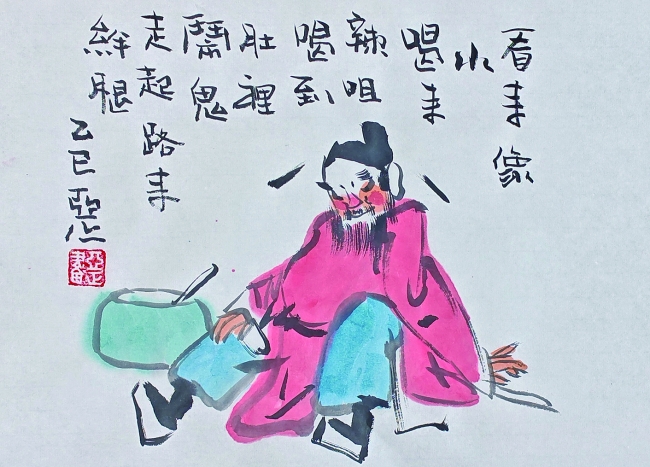 看来像
水
喝来
辣咀
喝到
肚裡
鬧鬼
走起路来
絆腿
乙巳